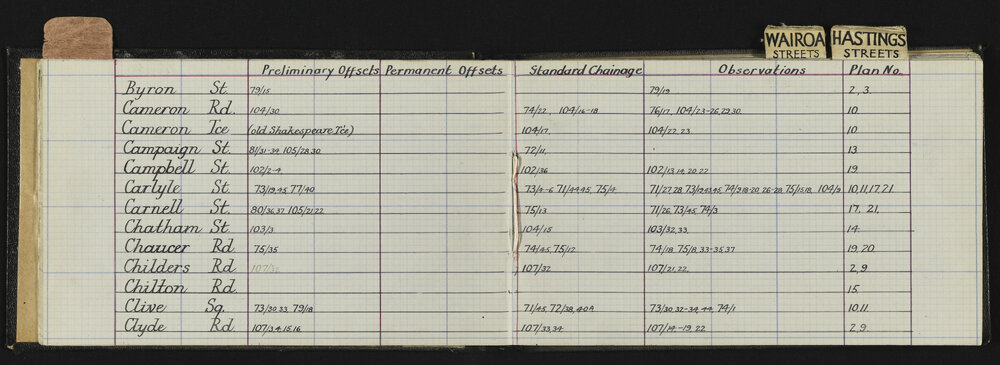 WAIROA STREETS
HASTINGS STREETS
Preliminary Offsets Permanent Offsets Standard Chainage Observations Plan No.
Byron St. 79/15 79/19 2, 3.
Cameron Rd. 104/30 74/22, 104/16-18 76/17, 104/23-26,29,30 10.
Cameron Tce (old Shakespeare Tce) 104/17. 104/22,23. 10.
Campaign St. 81/31-34, 105/28,30 72/11. 13
Campbell St. 102/2-4 102/36 102/13,14,20,22 19.
Carlyle St. 73/19,45, 77/40 73/4-6, 71/44,45, 75/4 71/27,28, 73/19,43,45, 74/9,18-20,26-28, 75/15,18, 104/9 10,11,17,21
Carnell St. 80/36,37, 105/21,22 75/13 71/26, 73/45, 74/3 17, 21,
Chatham St. 103/3 104/15 103/32,33. 14.
Chaucer Rd. 75/35 74/45, 75/12 74/18, 75/8,33-35,37 19, 20.
Childers Rd. 107/32 107/21,22. 2, 9
Chilton Rd. 15.
Clive Sq. 73/30,33, 79/18 71/45, 72/38,40A 73/30,32-34,44, 74/1 10,11.
Clyde Rd. 107/3,4,15,16 107/33,34 107/14-19,22 2, 9.